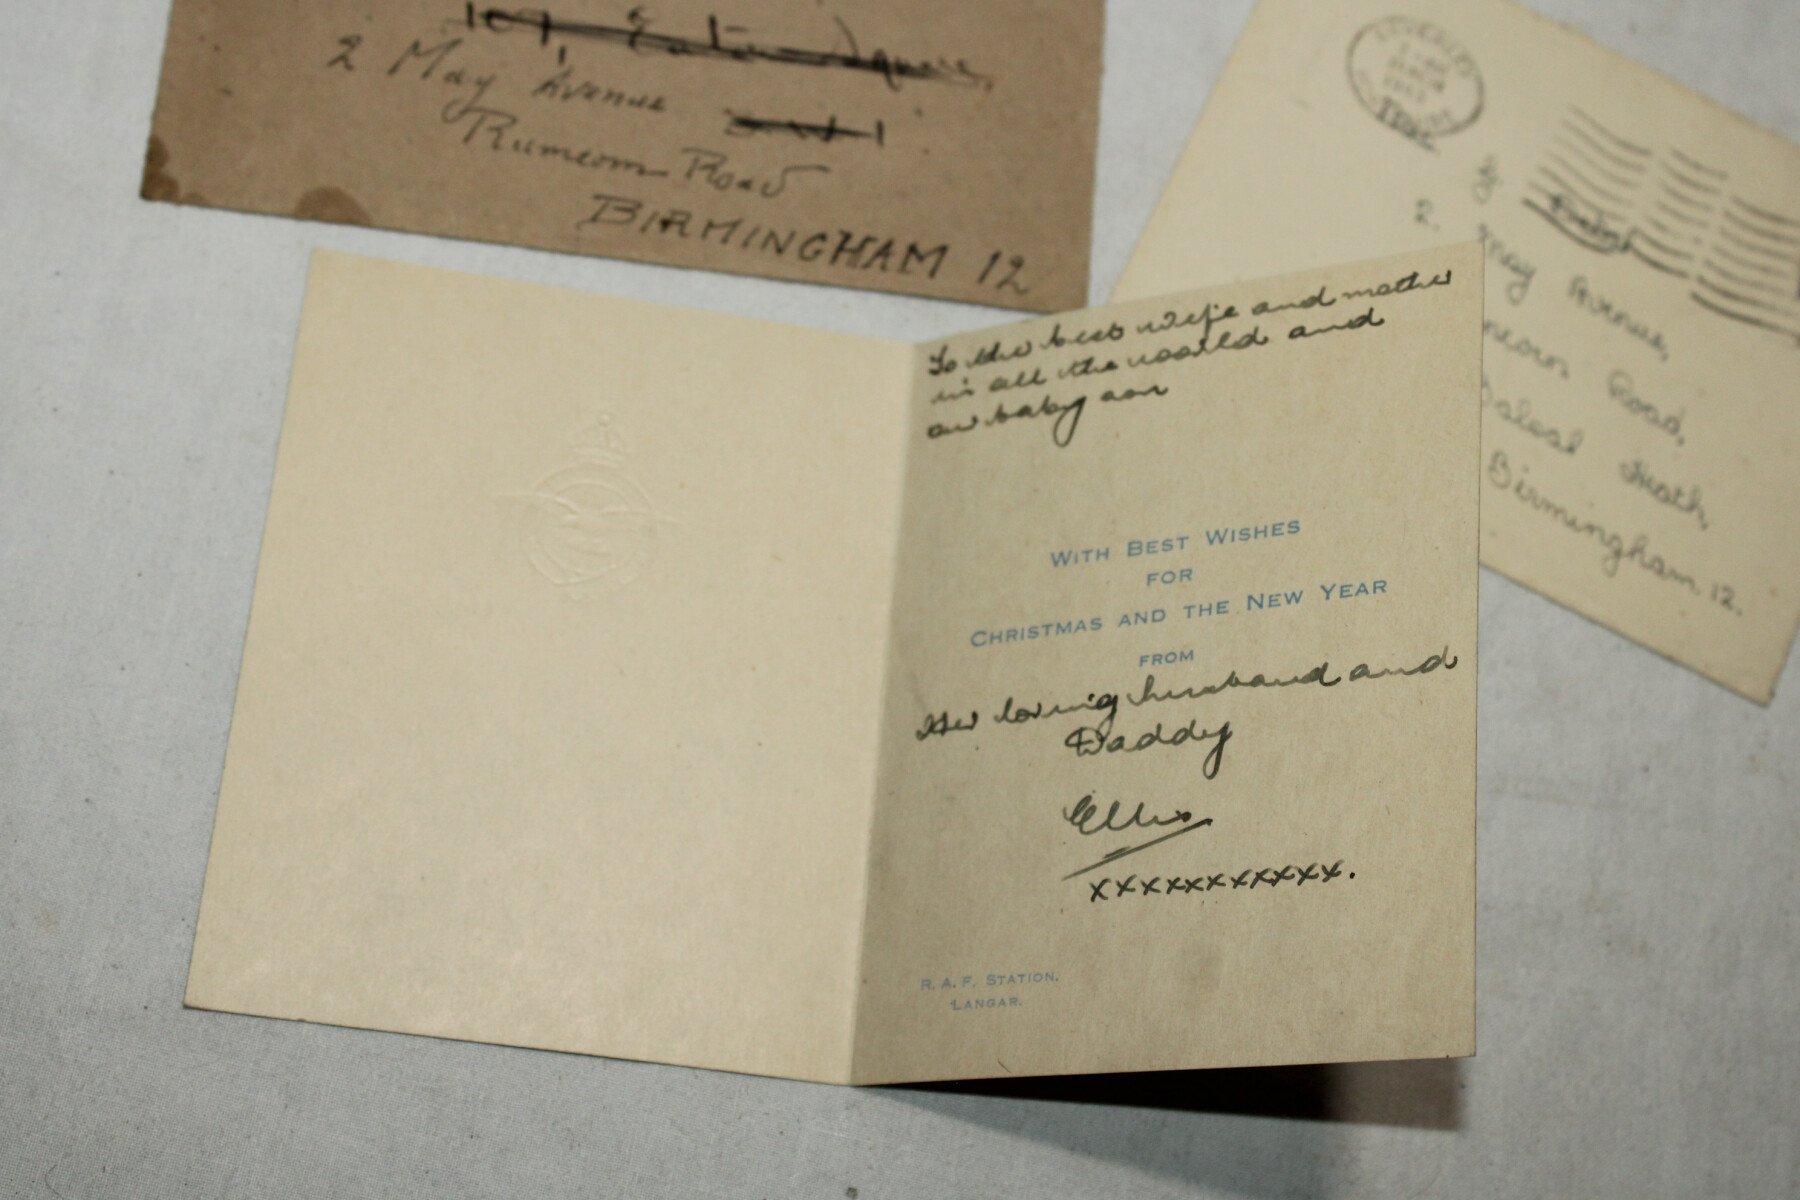 107, Eaton Square,
2 May Avenue
Runcorn Road
BIRMINGHAM 12
BEVERLEY
2. May Avenue,
Road,
Balsall Heath,
Birmingham 12.
To the best wife and mother
in all the world and
our baby son
WITH BEST WISHES
FOR
CHRISTMAS AND THE NEW YEAR
FROM
Her loving husband and
Daddy
Ellis
xxxxxxxxxxx.
R. A. F. STATION.
LANGAR.